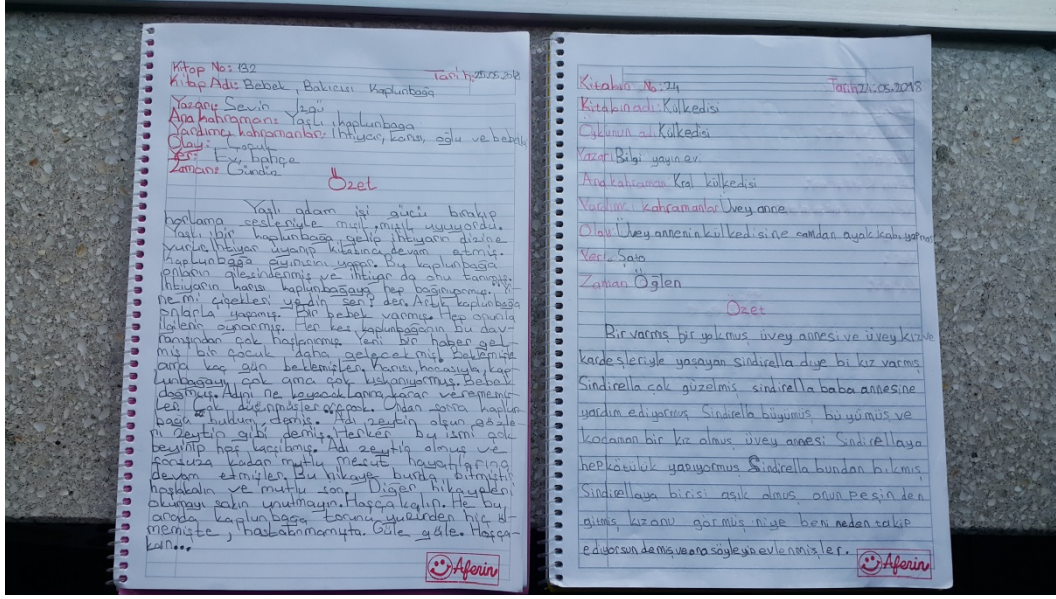 Kitap No: 132
Tarih: 25.05.2018
Kitap Adı: Bebek Bakıcısı Kaplunbağa
Yazarı: Sevin İzgü
Ana kahraman: Yaşlı kaplunbağa
Yardımcı kahramanlar: İhtiyar, karısı, oğlu ve bebek
Olay: Çoçuk
Yer: Ev, bahçe
Zaman: Gündüz
Özet
Yaşlı adam işi gücü bırakıp
horlama sesleriyle mışıl mışıl uyuyordu.
Yaşlı bir kaplunbağa gelip ihtiyarın dizine
İhtiyar uyanıp kitabına devam etmiş.
Kaplunbağa Bu kaplunbağa
onların ailesindenmiş ve ihtiyar da onu
İhtiyarın karısı kaplunbağaya hep bağırıyormuş. Yi-
ne mi çiçekleri yedin sen! der. Artık kaplunbağa
onlarla Bir bebek varmış. Hep onunla
oynarmış. Her kes kaplunbağanın bu dav-
ranışından çok hoşlanmış. Yeni bir haber gel-
miş bir çocuk daha gelecekmiş. Beklemişle
ama kaç gün beklemişler. Karısı, kocasıyla, kap-
lunbağayı çok ama çok kıskanıyormuş. Bebek
doğmuş. Adını ne koyacaklarına karar verememiş-
ler. Çok düşünmüşler çok. Ondan sonra kaplun-
bağa buldum demiş. Adı zeytin olsun gözle-
ri zeytin gibi demiş. Herkes bu ismi çok
Adı zeytin olmuş ve
sonsuza kadar mutlu mesut hayatlarına
devam etmişler. Bu hikaye burda bitmişti
hoşçakalın ve mutlu son. Diğer hikayeleri
okumayı sakın unutmayın. Hoşça kalın. He bu
arada kaplunbağa torunu yüzünden hiç öl-
memişte, hastalanmamışta. Güle güle. Hoşça-
kalın...
Aferin
Kitabın No: 24
Tarih: 24.05.2018
Kitabın adı: Külkedisi
Öykünün adı Külkedisi
Yazarı Bilgi yayın evi
Ana kahraman Kral külkedisi
Yardımcı kahramanlar Üvey anne
Olay Üvey annenin külkedisine camdan ayak kabı
Yeri Şato
Zaman Öğlen
Özet
Bir varmış bir yokmuş üvey annesi ve üvey kız ve
kardeşleriyle yaşayan sindirella diye bi kız varmış
Sindirella çok güzelmiş sindirella baba annesine
yardım ediyormuş Sindirella büyümüş büyümüş ve
kocaman bir kız olmuş üvey annesi Sindirellaya
hep kötülük yapıyormuş Sindirella bundan bıkmış
Sindirellaya birisi aşık olmuş onun peşinden
gitmiş kız onu görmüş niye beni neden takip
ediyorsun demiş ve ona söyleyip evlenmişler.
Aferin